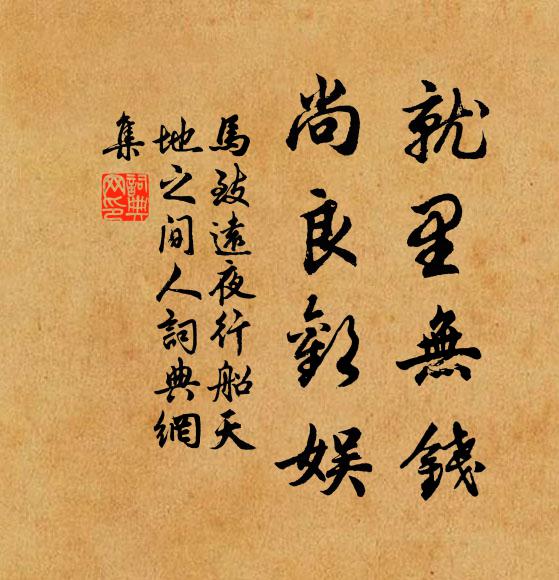 就里無錢
尚良歡娛
馬致遠夜行船天
地之间人詞典網
集
詞典
网印